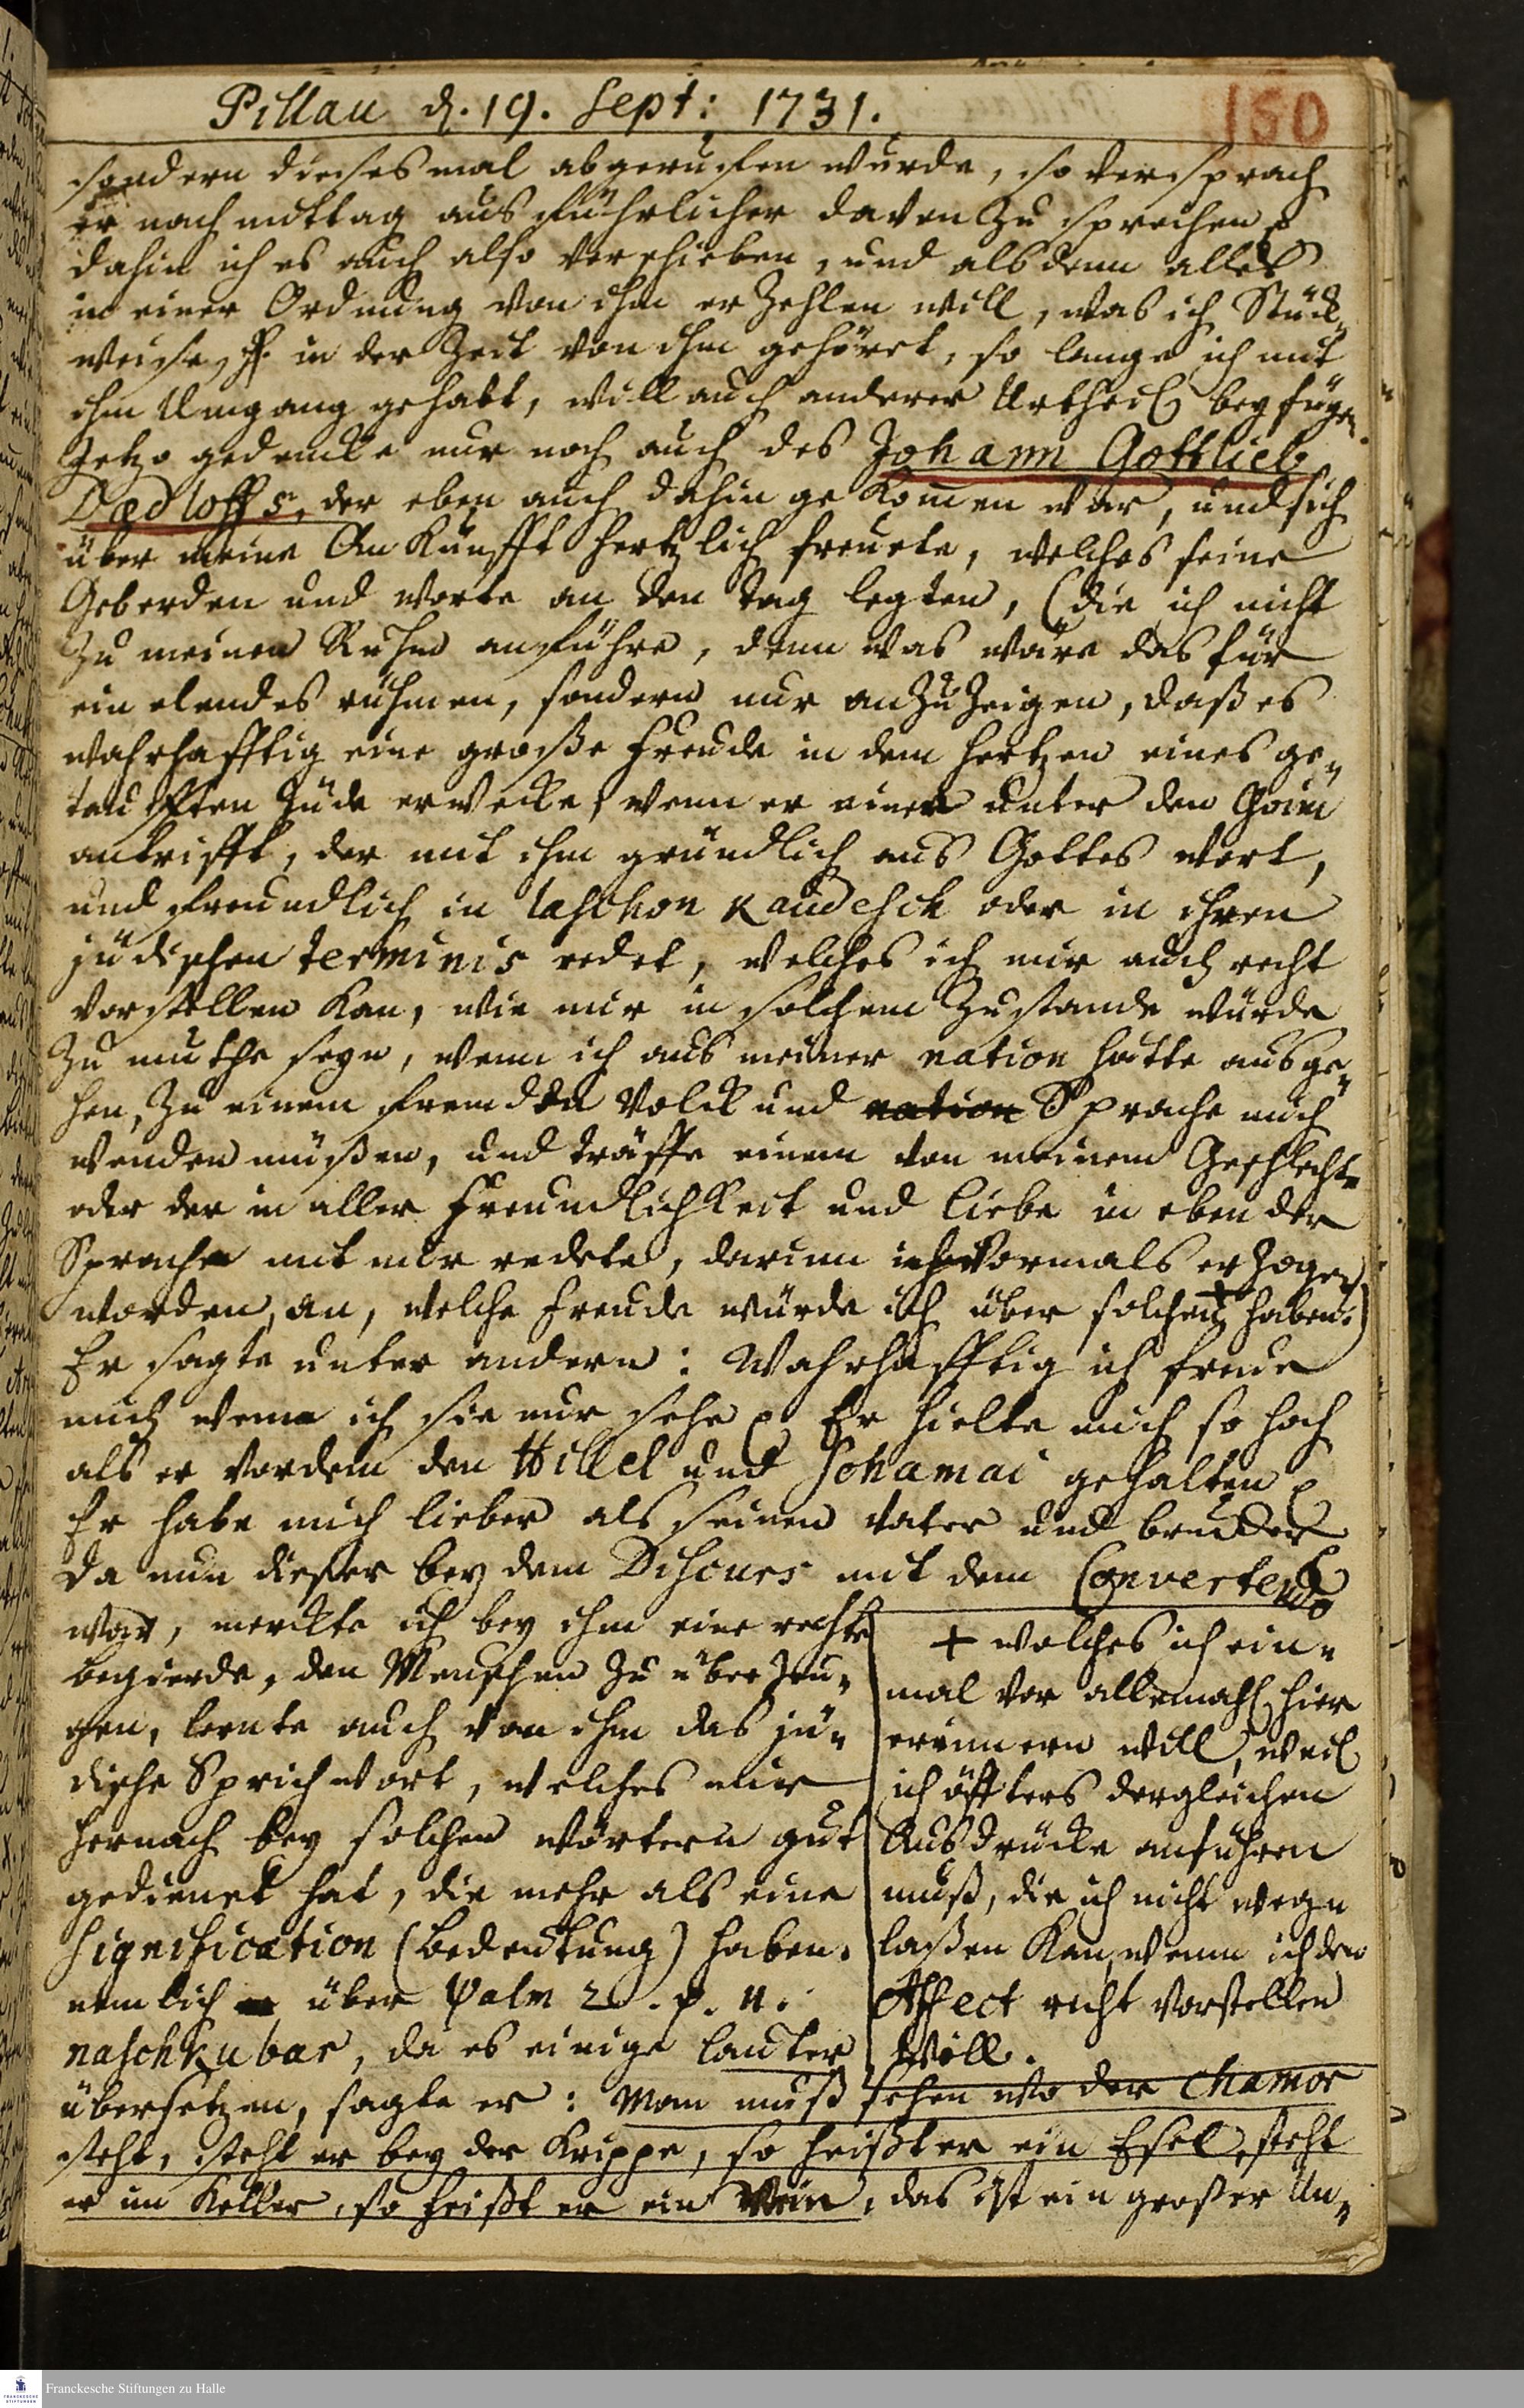 Pillau d. 19. Sept: 1731.
150
sondern dieses mal abgeruffen wurde, so versprach
er nach mittag ausführlicher davon zu sprechen
dahin ich es auch also verschieben, und alsdenn alles
in einer Ordnung von ihm erzehlen will, was ich Stück-
weise, in der Zeit von ihm gehöret, so lange ich mit
ihm Umgang gehabt, will auch anderer Urtheil beyfügen.
Jetzo gedencke nur noch auch des Johann Gottlieb
Dedloffs, der eben auch dahin gekommen war, und sich
über meine Ankunfft hertzlich freuete, welches seine
Geberden und Worte an den Tag legten, (die ich nicht
zu meinen Ruhm anführe, denn was wäre das für
ein elendes rühmen, sondern nur anzuzeigen, daß es
wahrhafftig eine große Freude in dem Hertzen eines ge-
taufften Jüde erwecke, wenn er einen unter den Goim
antrifft, der mit ihm gründlich aus Gottes Wort,
und freundlich in laschon kaudesch oder in ihren
jüdischen terminis redet, welches ich mir auch recht
vorstellen kan, wie mir in solchem Zustande würde
zu muthe seyn, wenn ich aus meiner nation hätte ausge-
hen, zu einem fremden Volck und nation Sprache mich
wenden müßen, und träffe einem von meinem Geschlecht-
oder der in aller Freundlichkeit und Liebe in eben der
Sprache mit mir redete, darinn ich vormals erzogen
worden, an, welche Freude würde ich über solchen + haben.)
Er sagte unter andern: Wahrhafftig ich freue
mich wenn ich sie nur sehe Er hielte mich so hoch
als er vordem den Hillel und Schamai gehalten
Er habe mich lieber als seinen Vater und Bruder
Da nun dießer bey dem Discours mit dem Convertendo
war, merckte ich bey ihm eine rechte
Begierde, den Menschen zu überzeu-
gen, lernte auch von ihm das jü-
dische Sprichwort, welches mir
hernach bey solchen Wörtern gut
gedienet hat, die mehr als eine
Signification (Bedeutung) haben.
nemlich über Psalm 2.
naschku bar, da es einige lauter
übersetzen, sagte er: Man muß sehen wo der Chamor
steht, steht er bey der Krippe, so heißt er ein Esel, steht
er im Keller, so heißt er ein Wein, das ist ein großer Un-
+ welches ich ein-
mal vor allemahl hier
erinnern will, weil
ich öffters dergleichen
Ausdrücke anführen
muß, die ich nicht weg
laßen kan, wenn ich den
Affect recht vorstellen
will.
Franckesche Stiftungen zu Halle